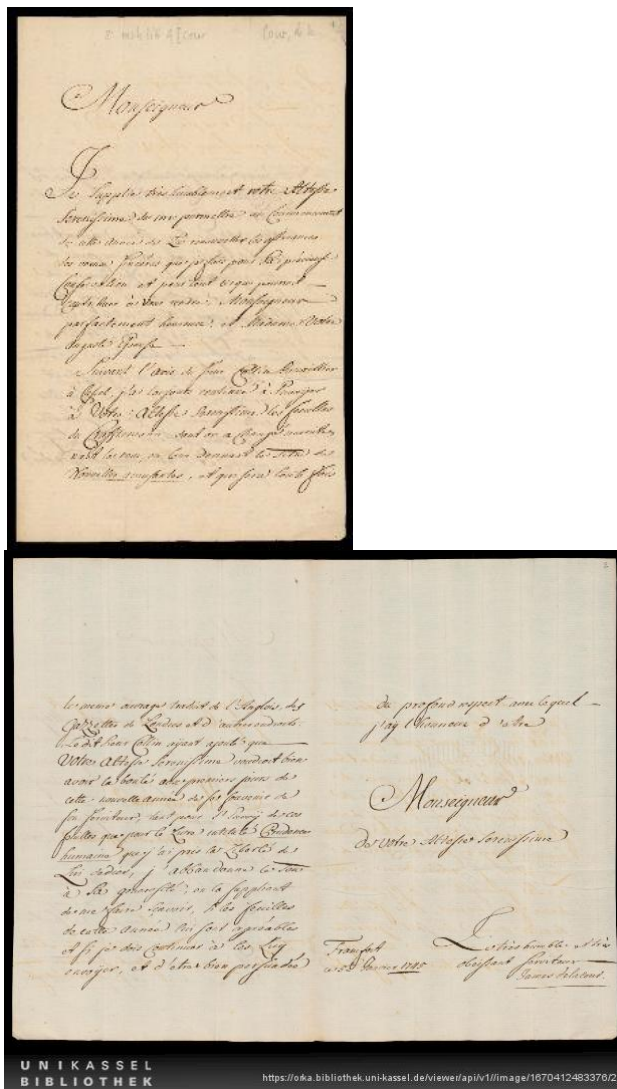 2° Ms. h. lit. 4 [Cour
Cour, de la
Monseigneur
Je Supplie très humblement votre Altesse
Serenissime de me permettre au Commencement
de cette Année de Lui renouveller les
les voeux sinceres que je fais pour Sa précieuse
Conservation et pour tout ce qui pourroit
Contribuer à Vous rendre, Monseigneur
parfaitement heureux, et Madame Votre
Auguste Epouse
Suivant l'avis du Sieur Collin
à Cassel, j'ai toujours continué à Envoyer
à Votre Altesse Serenissime les feuilles
du dont on a changé
le nom, en leur donnant le Titre des
Nouvelles , et qui sera toute fois
2
le meme ouvrage traduit de l'Anglois, des
Gazettes de Londres et d'autres endroits
Le dit Sieur Collin ayant ajouté que
Votre Altesse Serenissime voudroit bien
avoir la bonté aux premiers jours de
cette nouvelle année de se souvenir de
Son Serviteur, tant pour l'Envoy de ces
feuilles que pour le Livre intitulé Prudence
humaine que j'ai pris la Liberté de
Lui dedier, j'abbandonne le tout
à Sa generosité, en la suppliant
de me faire scavoir, si les feuilles
de cette Année lui sont agréables
et si je dois continuer à les Luy
envoyer, et d'etre bien persuadée
du profond respect avec lequel
j'ay l'honneur d'etre
Monseigneur
De Votre Altesse Serenissime
Francfort
ce 5 Janvier 1745
Le très humble et très
obeissant Serviteur
James de la Cour.
UNIKASSEL
BIBLIOTHEK
https://orka.bibliothek.uni-kassel.de/viewer/api/v1//image/1670412483376/2